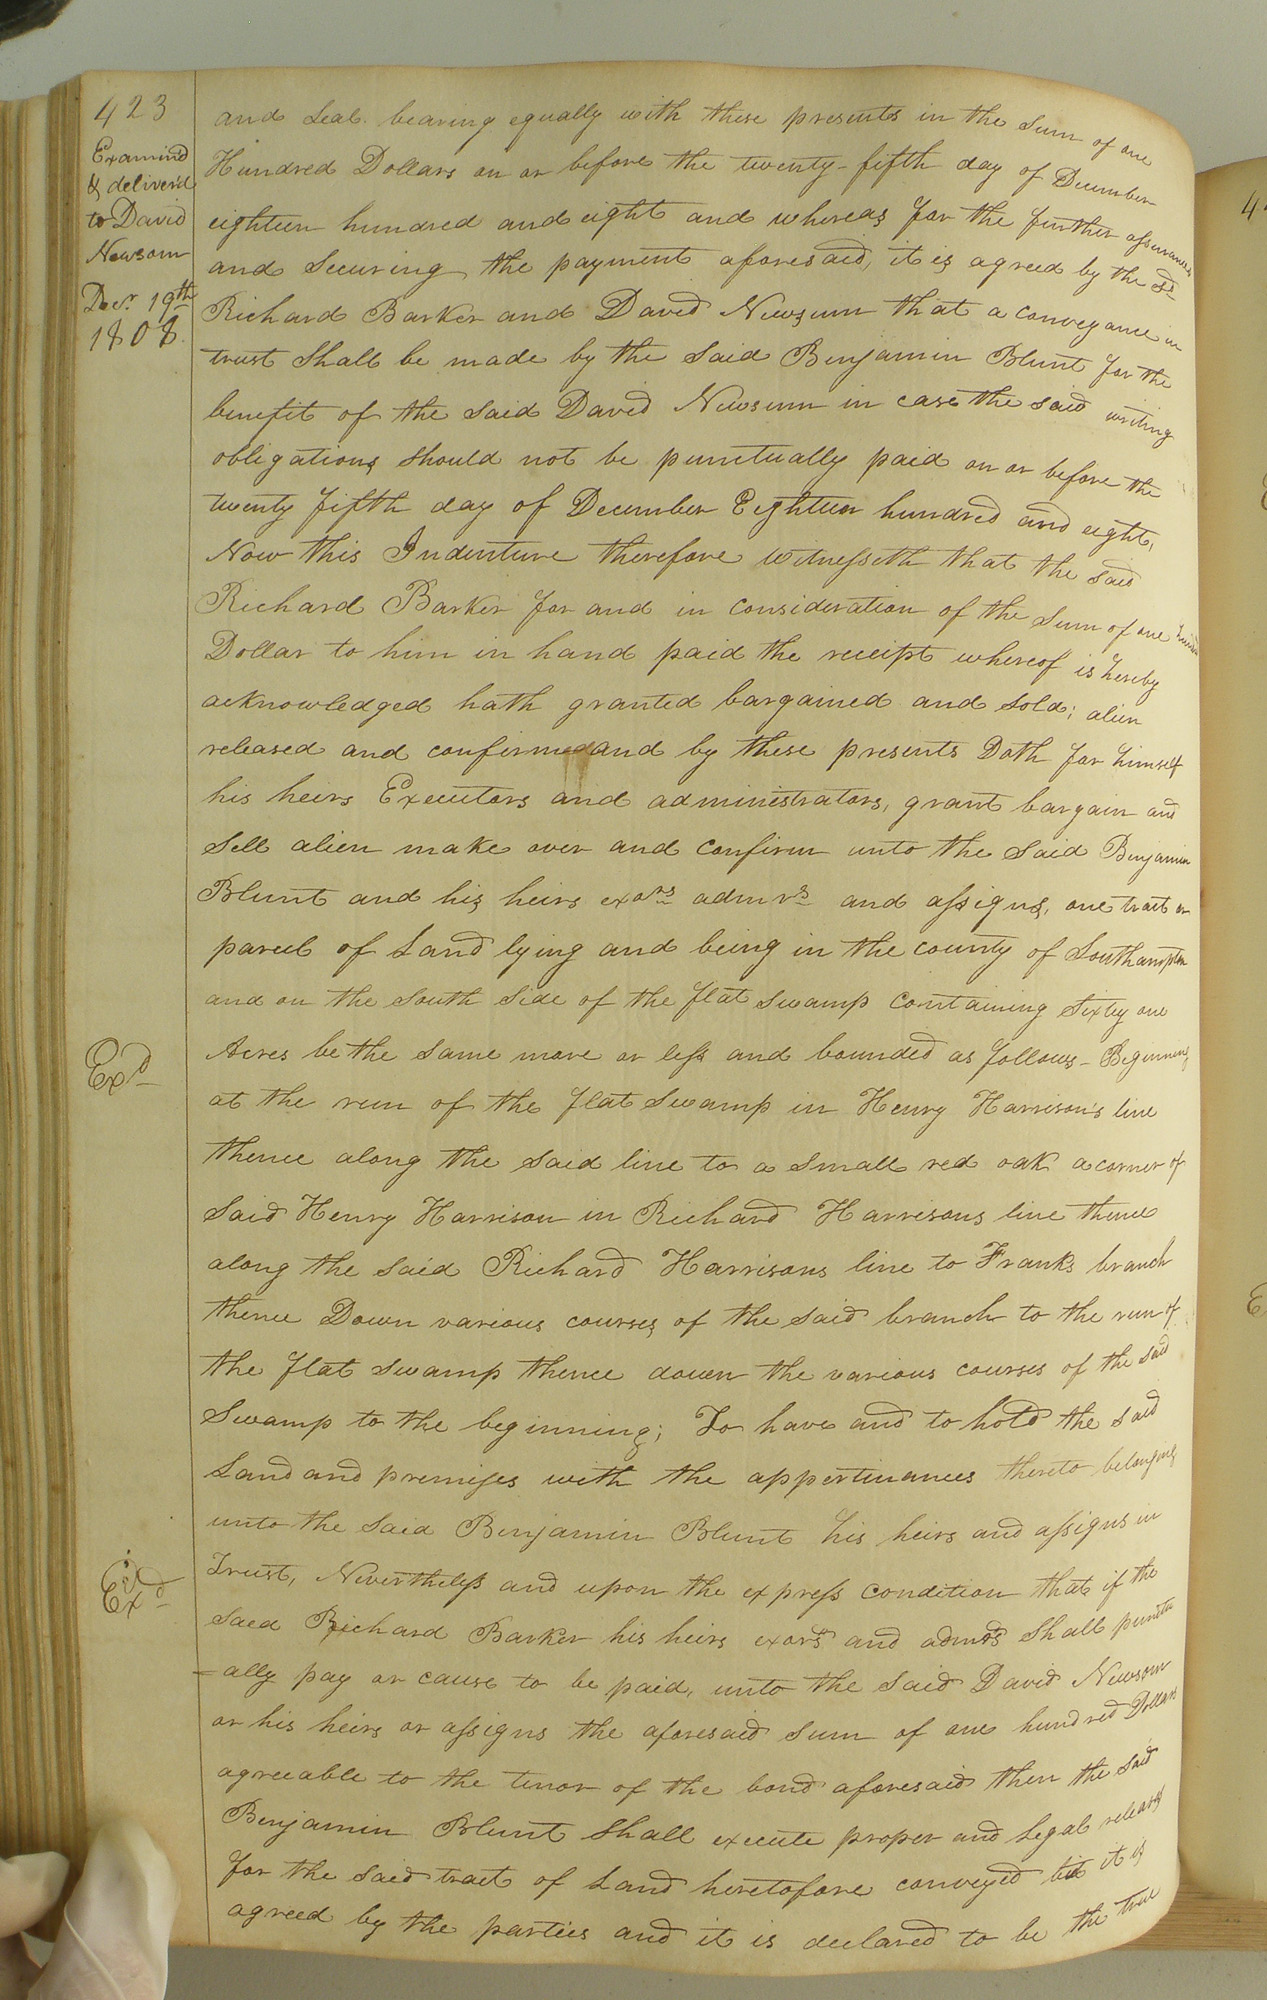 423
Examind
& deliver'd
to David
Newsom
Decr. 19th
1808.
and Seal. bearing equally with these presents in the Sum of one
Hundred Dollars on or before the twenty-fifth day of December
eighteen hundred and eight and whereas for the further assurance
and Securing the payment aforesaid, it is agreed by the sd
Richard Barker and David Newsum that a conveyance in
trust Shall be made by the Said Benjamin Blunt for the
benefit of the Said David Newsum in case the said writing
obligations should not be punctually paid on or before the
twenty fifth day of December Eighteen hundred and eight,
Now this Indenture therefore witnesseth that the said
Richard Barker for and in consideration of the Sum of one
Dollar to him in hand paid the receipt whereof is hereby
acknowledged hath granted bargained and sold; alien
released and confirmed and by these presents Doth for himself
his heirs Executors and administrators, grant bargain and
Sell alien make over and confirm unto the Said Benjamin
Blunt and his heirs exors admrs and assigns, one tract or
parcel of Land lying and being in the county of Southampton
and on the South Side of the flat swamp containing Sixty one
Acres be the same more or less and bounded as follows - Beginning
at the run of the flat Swamp in Henry Harrison's line
thence along the said line to a small red oak a corner of
Said Henry Harrison in Richard Harrisons line thence
along the said Richard Harrisons line to Franks branch
thence Down various courses of the said branch to the run of
the flat swamp thence down the various courses of the said
Swamp to the beginning; To have and to hold the said
Land and premises with the appertinances thereto belonging
unto the Said Benjamin Blunt his heirs and assigns in
Trust, Nevertheless and upon the express condition that if the
Said Richard Barker his heirs exors and admrs Shall punctu
=ally pay or cause to be paid, unto the Said David Newsom
or his heirs or assigns the aforesaid Sum of one hundred Dollars
agreeable to the tenor of the bond aforesaid then the said
Benjamin Blunt Shall execute proper and Legal releases
for the said tract of Land heretofore conveyed but it is
agreed by the parties and it is declared to be the true
Exd
Exd